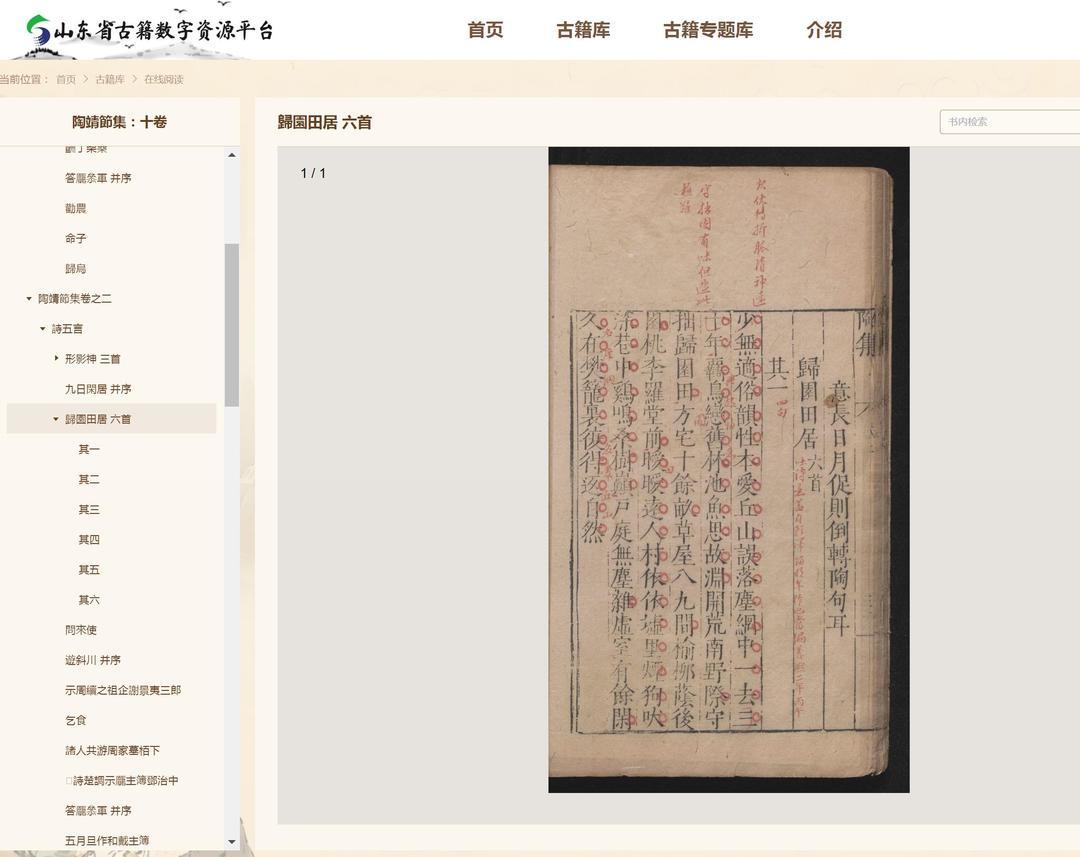 山东省古籍数字资源平台
首页
古籍库
古籍专题库
介绍
当前位置： 首页 > 古籍库 > 在线阅读
陶靖節集：十卷
答龐叅軍 并序
勸農
命子
歸鳥
陶靖節集卷之二
詩五言
形影神 三首
九日閑居 并序
歸園田居 六首
其一
其二
其三
其四
其五
其六
問來使
遊斜川 并序
示周續之祖企謝景夷三郎
乞食
諸人共游周家墓栢下
詩楚調示龐主簿鄧治中
答龐叅軍 并序
五月旦作和戴主簿
歸園田居 六首
书内检索
1 / 1
陶集
意長日月促則倒轉陶句耳
歸園田居 六首
其一
少無適俗韻性本愛丘山誤落塵網中一去三
十年羈鳥戀舊林池魚思故淵開荒南野際守
拙歸園田方宅十餘畝草屋八九間榆柳蔭後
園桃李羅堂前曖曖遠人村依依墟里煙狗吠
深巷中鷄鳴桑樹巔戶庭無塵雜虛室有餘閑
久在樊籠裏復得返自然